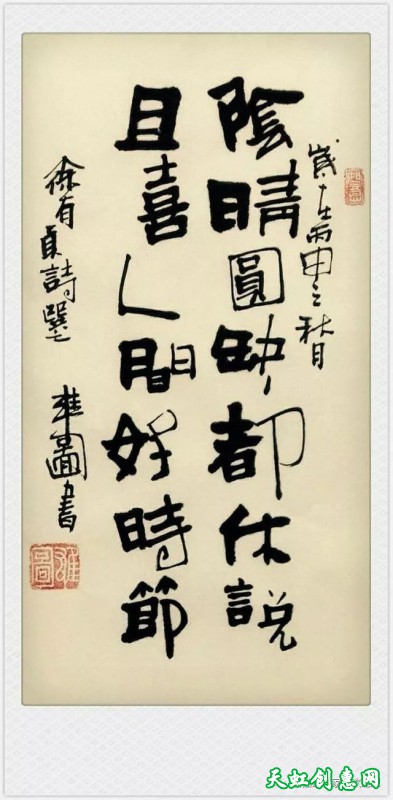 歲在丙申之秋月
陰晴圓缺都休說
且喜人間好時節
徐有貞詩選
雄圖書
天虹创意网